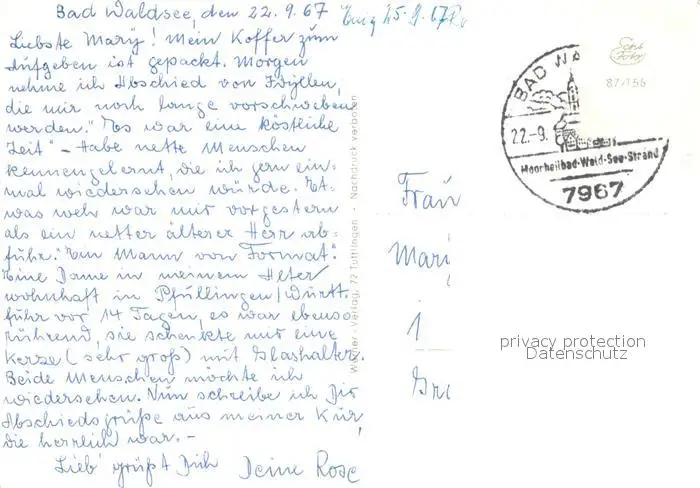 Bad Waldsee, den 22.9.67
Liebste Mary! Mein Koffer zum
Aufgeben ist gepackt. Morgen
nehme ich Abschied von Idyllen,
die mir noch lange vorschweben
werden." Es war eine köstliche
Zeit" - Habe nette Menschen
kennengelernt, die ich gern ein-
mal wiedersehen würde. Et-
was weh war mir vorgestern
als ein netter älterer Herr ab-
fuhr. "Ein Mann von Format."
Eine Dame in meinem Alter
wohnhaft in Pfullingen/Württ.
fuhr vor 14 Tagen, es war ebenso
rührend, sie schenkte mir eine
Kerze (sehr groß) mit Glashalter.
Beide Menschen möchte ich
wiedersehen. Nun schreibe ich Dir
Abschiedsgrüße aus meiner Kur,
die herrlich war. -
Lieb' grüßt Dich Deine Rose
Verlag, 72 Tuttlingen - Nachdruck verboten
87/156
BAD WA
22.-9.
Moorheilbad-Wald-See-Strand
7967
Frau
Mari
1
privacy protection
Datenschutz